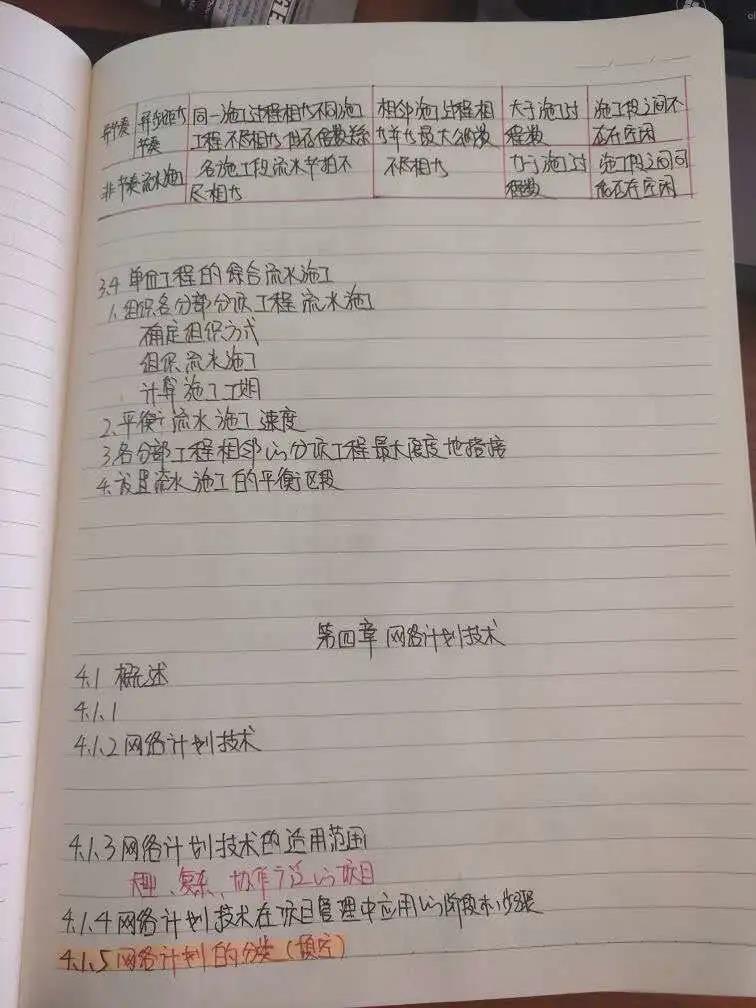 异节奏 异步距节奏 同一施工过程相等不同施工程不尽相等但存倍数关系 相邻施工过程相等等于最大公约数 大于施工过程数 施工段之间不存在空闲
非节奏流水施工 各施工段流水节拍不尽相等 不尽相等 等于施工过程数 施工段之间可能存在空闲
3.4 单位工程的综合流水施工
1.组织各分部分项工程流水施工
确定组织方式
组织流水施工
计算施工工期
2.平衡流水施工速度
3.各分部工程相邻的分项工程最大限度地搭接
4.设置流水施工的平衡区段
第四章 网络计划技术
4.1 概述
4.1.1
4.1.2 网络计划技术
4.1.3 网络计划技术的适用范围
大型、复杂、协作广泛的项目
4.1.4 网络计划技术在项目管理中应用的阶段和步骤
4.1.5 网络计划的分类(填空)